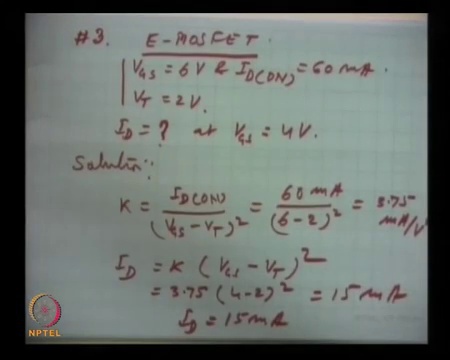 #3. E-MOSFET.
V_GS = 6V & I_D(ON) = 60 mA.
V_T = 2V.
I_D = ? at V_GS = 4V.
Solution:
K = I_D(ON) / (V_GS - V_T)^2 = 60 mA / (6-2)^2 = 3.75 mA/V^2
I_D = K (V_GS - V_T)^2
= 3.75 (4-2)^2 = 15 mA
I_D = 15 mA
NPTEL